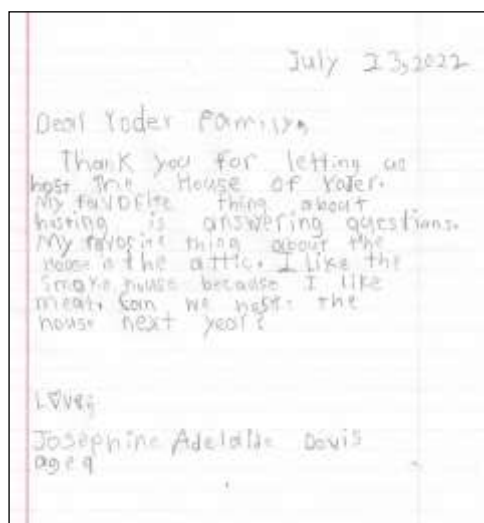 July 23, 2022
Dear Yoder Family,
Thank you for letting us
host the House of Yoder.
My favorite thing about
hosting is answering questions.
My favorite thing about the
house is the attic. I like the
smoke house because I like
meat. Can we host the
house next year?
Love,
Josephine Adelaide Davis
age 9